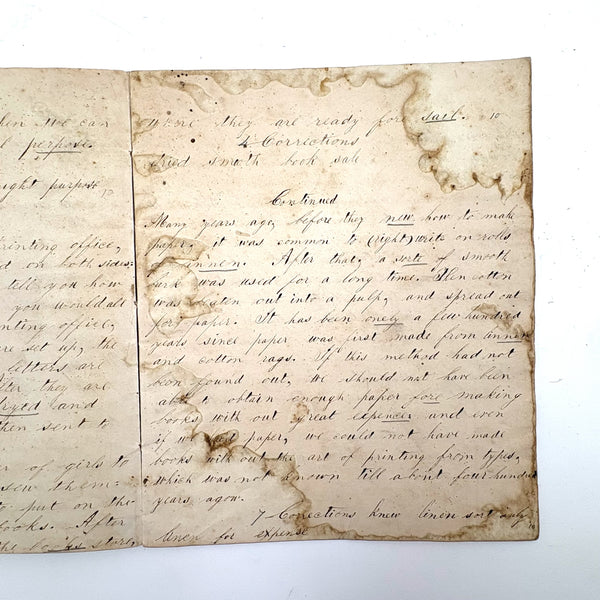 hen we can
l perpose.
ught purpose 10
rinting office,
d on both sides.
tell you how
you would all
nting office,
re set up, the
letters are
ter they are
dryed and
then sent to
er of girls to
sew them.
to put on the
ooks. After
the books store,
where they are ready fore sail. 10
4 Corrections
dried smoth book sale
Continued
Many years ago, before they new how to make
paper, it was common to (right) write on rolls
innen. After that, a sorte of smooth
bark was used for a long time. Then cotton
was beaten out into a pulp, and spread out
for paper. It has been onely a few hundred
years since paper was first made from linnen
and cotton rags. If this method had not
been found out, we should not have been
able to obtain enough paper fore making
books with out great expencer and even
if we had paper, we could not have made
books with out the art of printing from types,
which was not known till about four hundred
years agow.
7 Corrections knew linen sort only
linen for expense 10